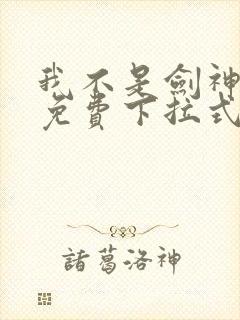 我不是劍神
免費下拉式
諸葛洛神